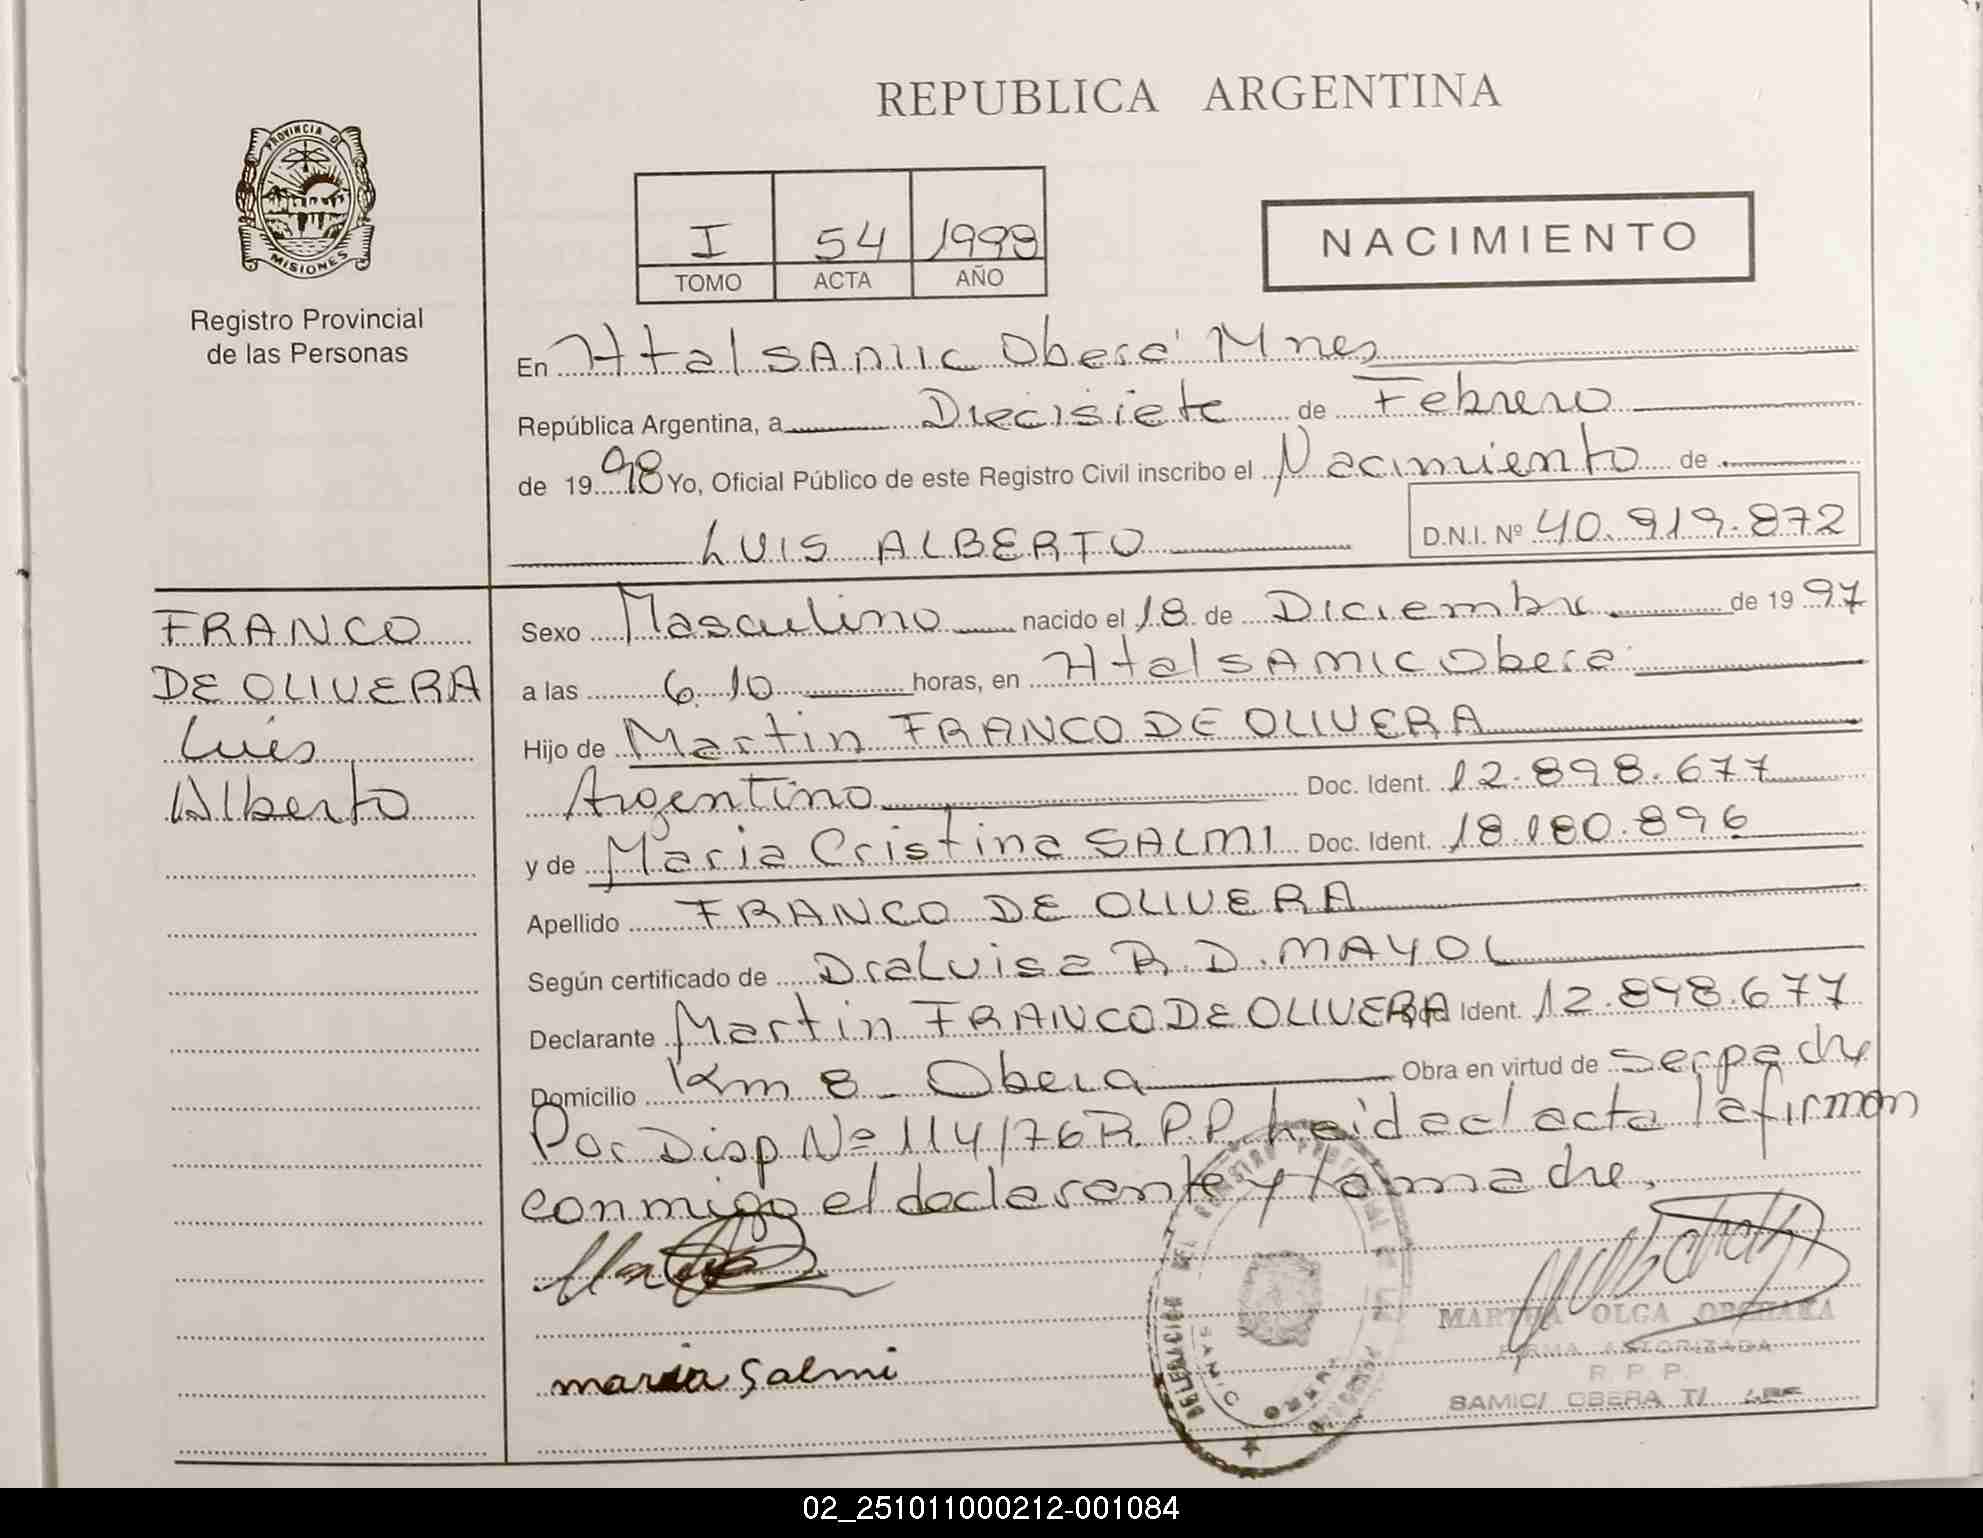 REPUBLICA ARGENTINA
PROVINCIA DE
MISIONES
Registro Provincial
de las Personas
I 54 1998
TOMO ACTA AÑO
NACIMIENTO
En Htal SAMIC Oberá Mnes
República Argentina, a Diecisiete de Febrero
de 1998 Yo, Oficial Público de este Registro Civil inscribo el Nacimiento de
LUIS ALBERTO D.N.I. Nº 40.919.872
FRANCO
DE OLIVERA
Luis
Alberto
Sexo Masculino nacido el 18 de Diciembre de 1997
a las 6.10 horas, en Htal SAMIC Obera
Hijo de Martin FRANCO DE OLIVERA
Argentino Doc. Ident. 12.898.677
y de Maria Cristina SALMI Doc. Ident. 18.180.896
Apellido FRANCO DE OLIVERA
Según certificado de Dra Luisa R. D. MAYOL
Declarante Martin FRANCO DE OLIVERA Doc Ident. 12.898.677
Domicilio Km 8 - Obera Obra en virtud de ser padre
Por Disp Nº 114/76 R.P.P. leida el acta la firman
conmigo el declarante y la madre.
maria Salmi
DELEGACION DEL REGISTRO PROVINCIAL DE LAS PERSONAS
SAMIC
OBERA
MARTHA OLGA
FIRMA AUTORIZADA
R. P. P.
SAMIC/ OBERA T/
02_251011000212-001084